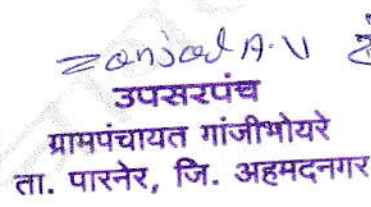 Zanjad A.U
उपसरपंच
ग्रामपंचायत गांजीभोयरे
ता. पारनेर, जि. अहमदनगर